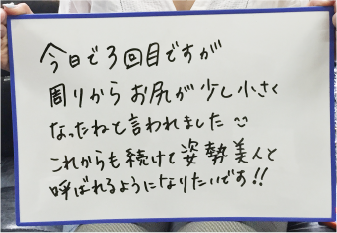 今日で3回目ですが
周りからお尻が少し小さく
なったねと言われました
これからも続けて姿勢美人と
呼ばれるようになりたいです!!